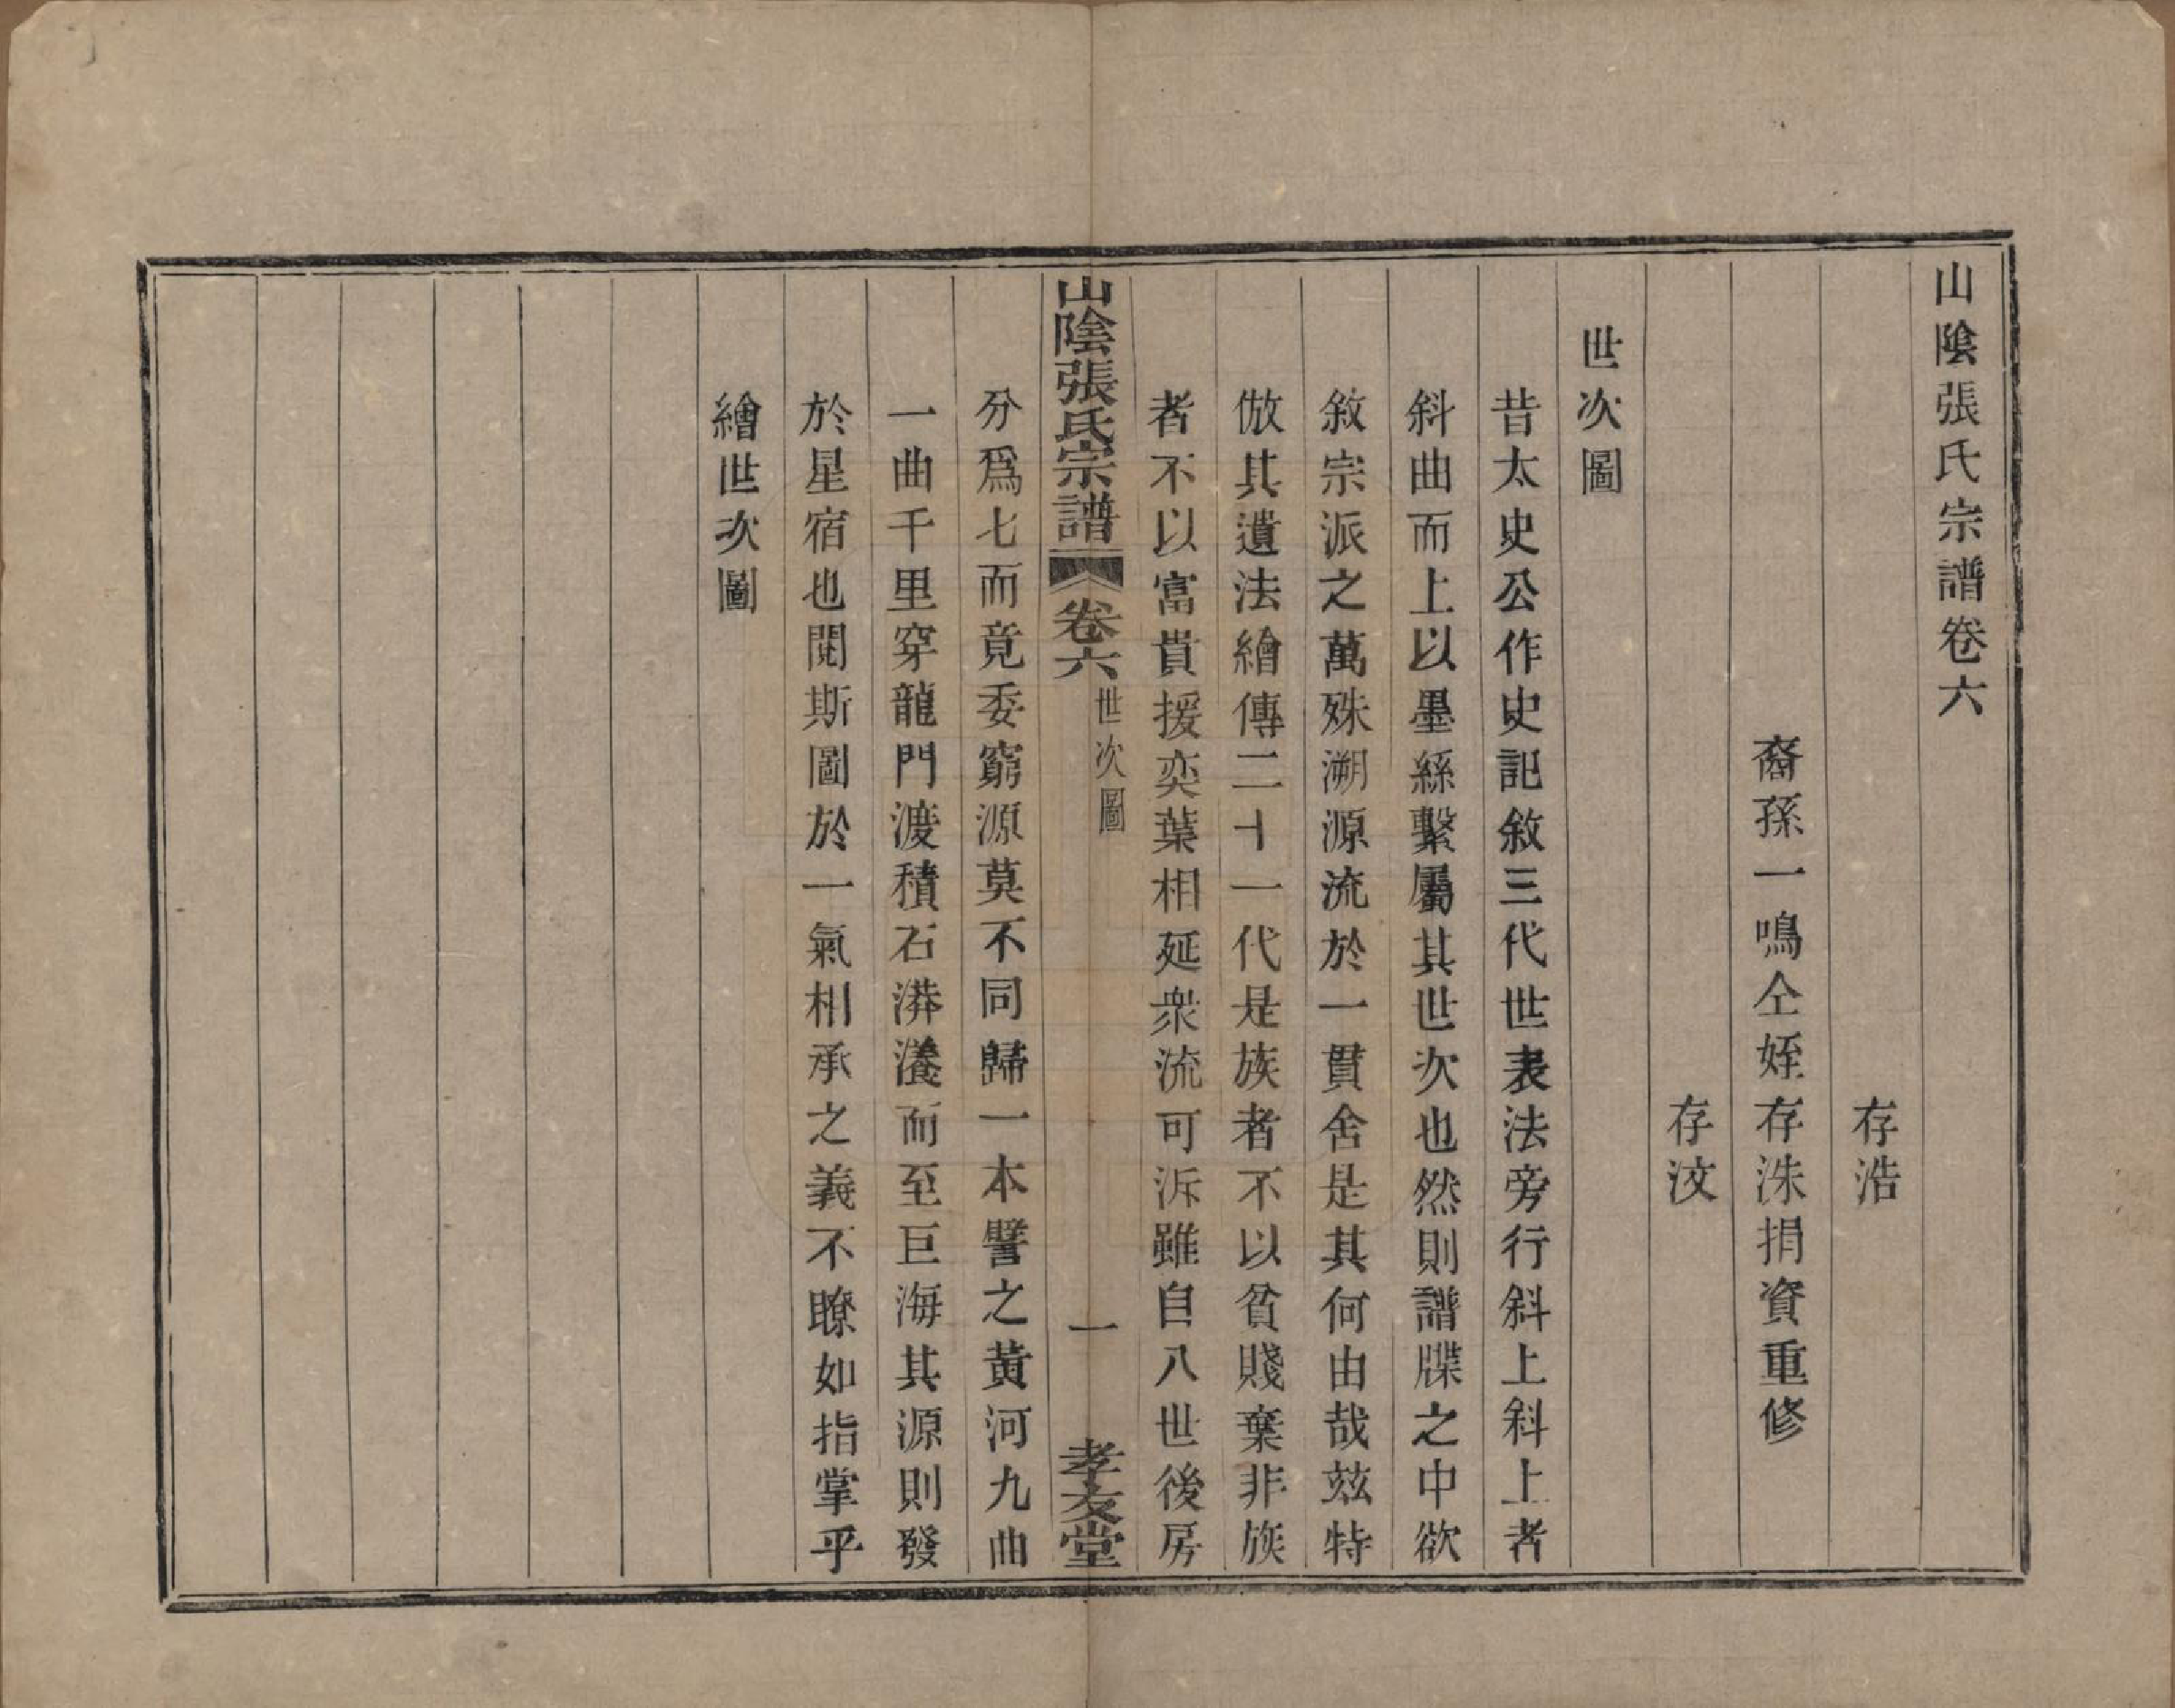 山陰張氏宗譜卷六
存浩
裔孫一鳴仝姪存洙捐資重修
存汶
世次圖
昔太史公作史記敘三代世表法旁行斜上斜上者
斜曲而上以墨絲繫屬其世次也然則譜牒之中欲
敘宗派之萬殊溯源流於一貫舍是其何由哉玆特
倣其遺法繪傳二十一代是族者不以貧賤棄非族
者不以富貴援奕葉相延衆流可泝雖自八世後房
山陰張氏宗譜 卷六 世次圖 一 孝友堂
分爲七而竟委窮源莫不同歸一本譬之黃河九曲
一曲千里穿龍門渡積石漭瀁而至巨海其源則發
於星宿也閱斯圖於一氣相承之義不瞭如指掌乎
繪世次圖